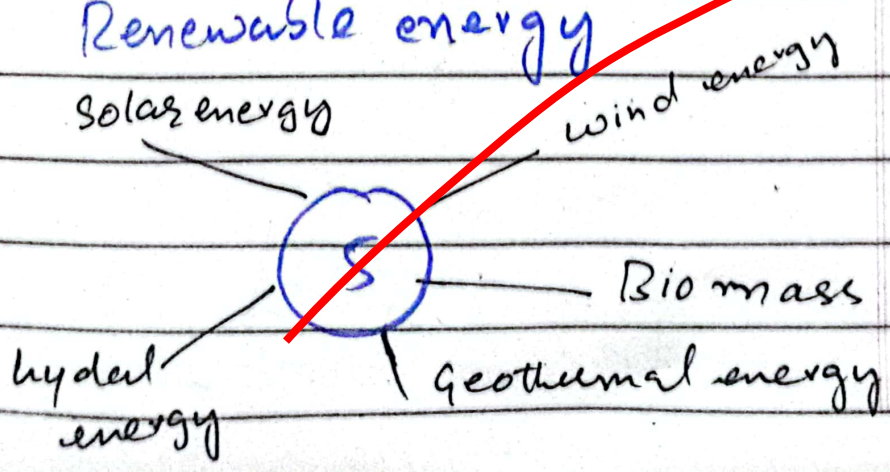 Renewable energy
solar energy
wind energy
S
Bio mass
hydal
energy
Geothermal energy